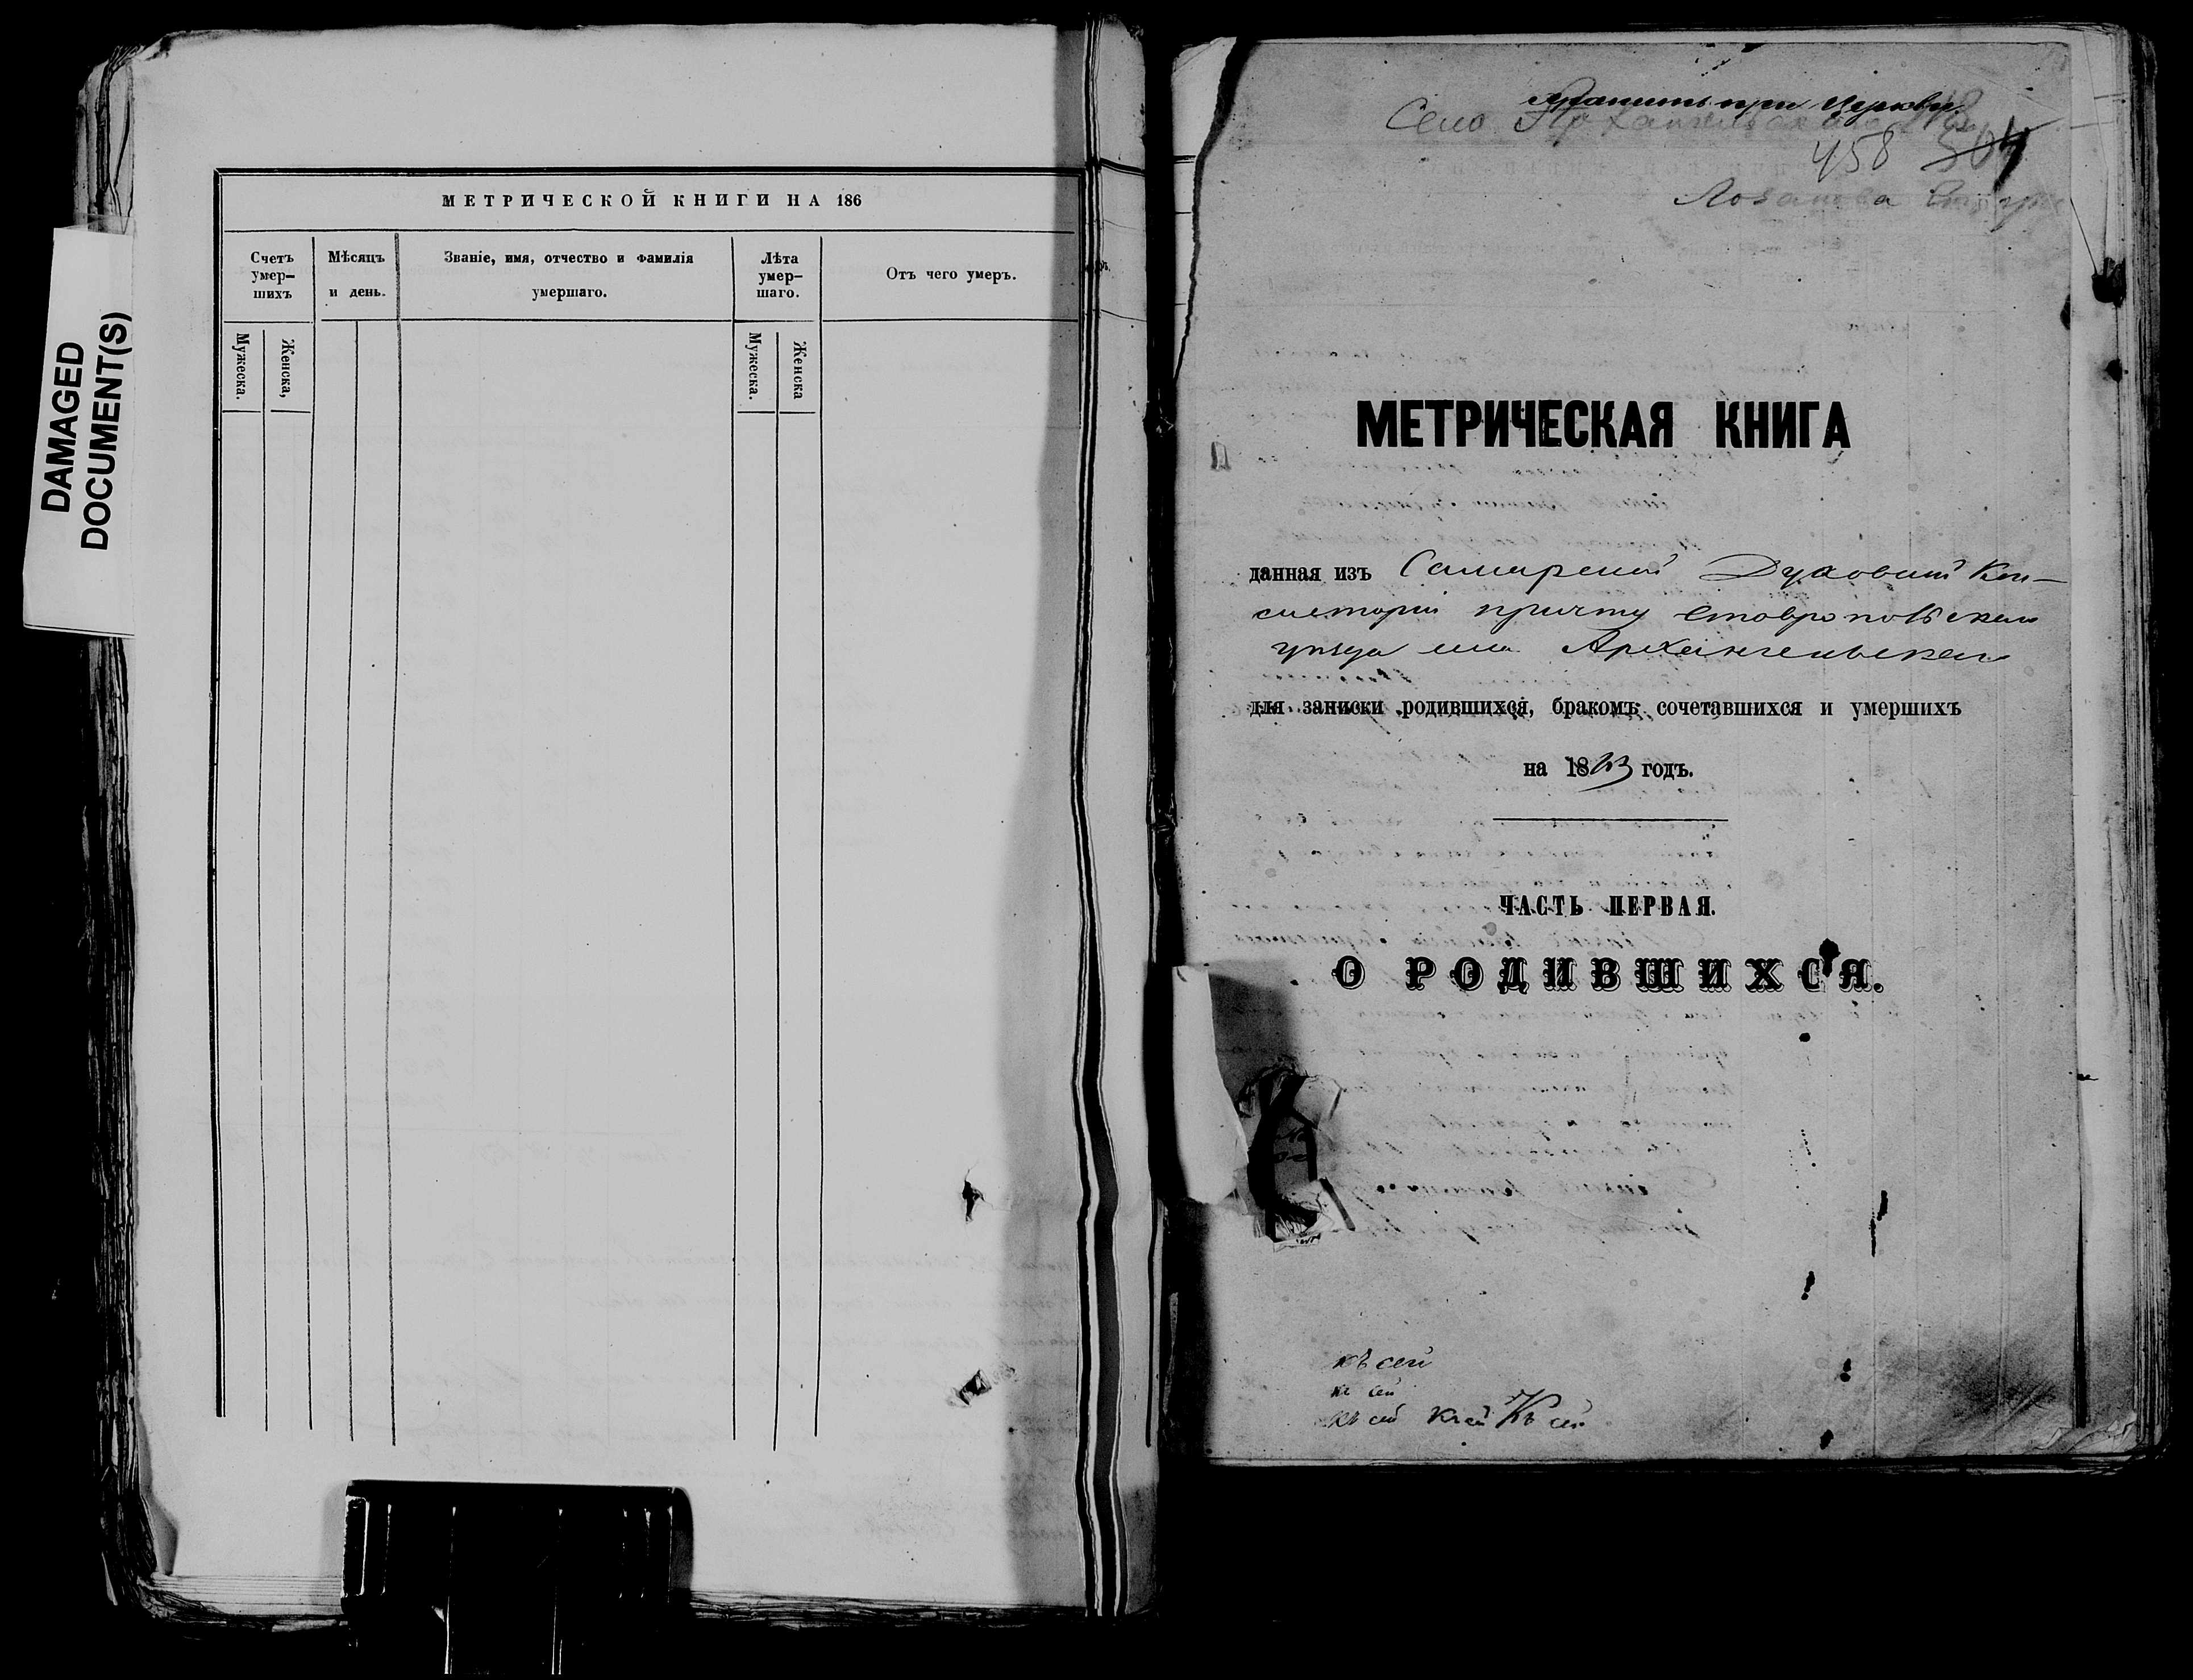 DAMAGED
DOCUMENT(S)
МЕТРИЧЕСКОЙ КНИГИ НА 186
Счетъ умер-шихъ
Мѣсяцъ и день.
Званіе, имя, отчество и фамилія умершаго.
Лѣта умер-шаго.
Отъ чего умеръ.
Мужеска.
Женска,
Мужеска.
Женска
Хранить при церкви
Село
458 504
МЕТРИЧЕСКАЯ КНИГА
данная изъ Самарской Духовной Кон-
систоріи причту Ставропольскаго
уѣзда села Архангельскаго
для записки родившихся, бракомъ сочетавшихся и умершихъ
на 1863 годъ.
ЧАСТЬ ПЕРВАЯ.
О РОДИВШИХСЯ.
къ сей
къ сей
къ сей къ сей Къ сей